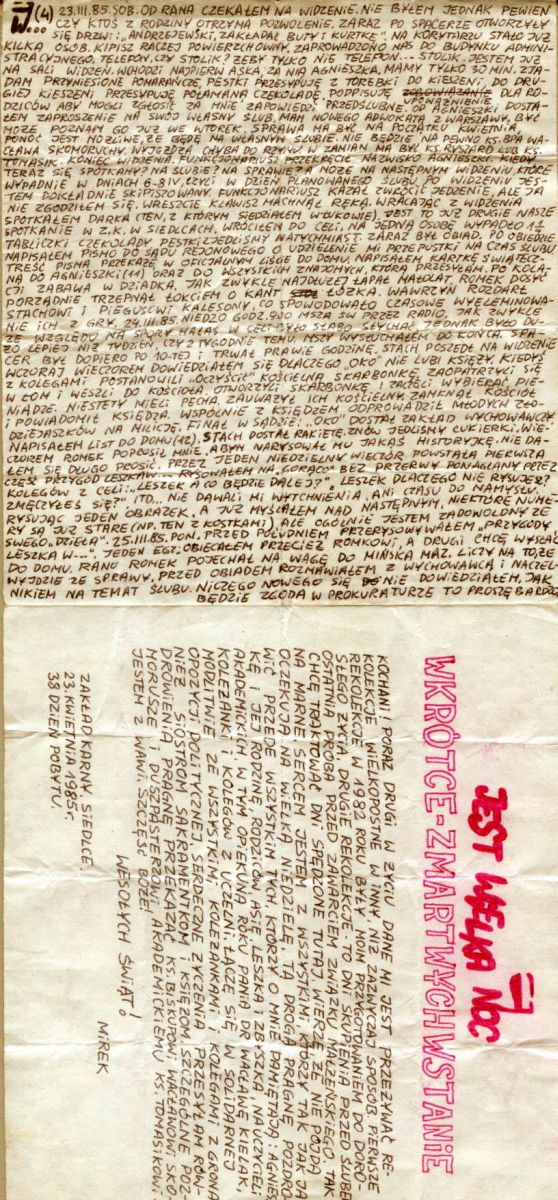 W... (4) 23.III.85. SOB. OD RANA CZEKAŁEM NA WIDZENIE. NIE BYŁEM JEDNAK PEWIEN
CZY KTOŚ Z RODZINY OTRZYMA POZWOLENIE. ZARAZ PO SPACERZE OTWORZYŁY
SIĘ DRZWI: „ANDRZEJEWSKI, ZAKŁADAĆ BUTY I KURTKĘ". NA KORYTARZU STAŁO JUŻ
KILKA OSÓB. KIPISZ RACZEJ POWIERZCHOWNY. ZAPROWADZONO NAS DO BUDYNKU ADMINI-
STRACYJNEGO. TELEFON, CZY STOLIK? ŻEBY TYLKO NIE TELEFON... STOLIK. JESTEM JUŻ
NA SALI WIDZEŃ. WCHODZI NAJPIERW ASKA, ZA NIĄ AGNIESZKA, MAMY TYLKO 30 MIN. ZJA-
DAM PRZYNIESIONE POMARAŃCZE, PESTKI PRZESYPUJĘ Z TOREBKI DO KIESZENI. DO DRU-
GIEJ KIESZENI PRZESYPUJĘ POŁAMANĄ CZEKOLADĘ. PODPISUJĘ UPOWAŻNIENIE DLA RO-
DZICÓW ABY MOGLI ZGŁOSIĆ ZA MNIE ZAPOWIEDZI PRZEDŚLUBNE. OD AGNIESZKI DOSTA-
ŁEM ZAPROSZENIE NA SWÓJ WŁASNY ŚLUB. MAM NOWEGO ADWOKATA Z WARSZAWY, BYĆ
MOŻE POZNAM GO JUŻ WE WTOREK. SPRAWA MA BYĆ NA POCZĄTKU KWIETNIA.
PONOĆ JEST MOŻLIWE, ŻE BĘDĘ NA WŁASNYM ŚLUBIE. NIE BĘDZIE NA PEWNO KS. BPA WA-
CŁAWA SKOMORUCHY. WYJEŻDŻA CHYBA DO RZYMU. W ZAMIAN MA BYĆ KS. RYSZARD LUB KS.
TOMASIK. KONIEC WIDZENIA. FUNKCJONARIUSZ PRZEKRĘCIŁ NAZWISKO AGNIESZKI. KIEDY
TERAZ SIĘ SPOTKAMY? NA ŚLUBIE? NA SPRAWIE? A MOŻE NA NASTĘPNYM WIDZENIU, KTÓRE
WYPADNIE W DNIACH 6-8 IV, CZYLI W DZIEŃ PLANOWANEGO ŚLUBU. PO WIDZENIU JES-
TEM DOKŁADNIE SKIPISZOWANY. FUNKCJONARIUSZ KAZAŁ ZWRÓCIĆ JEDZENIE, ALE JA
NIE ZGODZIŁEM SIĘ. WRESZCIE KLAWISZ MACHNĄŁ RĘKĄ. WRACAJĄC Z WIDZENIA
SPOTKAŁEM DARKA (TEN, Z KTÓRYM SIEDZIAŁEM W ŁUKOWIE). JEST TO JUŻ DRUGIE NASZE
SPOTKANIE W Z.K. W SIEDLCACH. WRÓCIŁEM DO CELI, NA JEDNĄ OSOBĘ WYPADŁO 1½
TABLICZKI CZEKOLADY. PESTKI ZJEDLIŚMY NATYCHMIAST. ZARAZ BYŁ OBIAD. PO OBIEDZIE
NAPISAŁEM PISMO DO SĄDU REJONOWEGO O UDZIELENIE MI PRZEPUSTKI NA CZAS ŚLUBU.
TREŚĆ PISMA PRZEKAŻĘ W OFICJALNYM LIŚCIE DO DOMU. NAPISAŁEM KARTKĘ ŚWIĄTECZ-
NĄ DO AGNIESZKI (11) ORAZ DO WSZYSTKICH ZNAJOMYCH, KTÓRĄ PRZESYŁAM. PO KOLA-
CJI ZABAWA W DZIADKA. JAK ZWYKLE NAJDŁUŻEJ ŁAPAŁ MAŁOLAT. ROMEK DOSYĆ
PORZĄDNIE TRZEPNĄŁ ŁOKCIEM O KANT ŁÓŻKA. WAWRZYN ROZDARŁ
STACHOWI I PIEGUSOWI KALESONY, CO SPOWODOWAŁO CZASOWE WYELIMINOWA-
NIE ICH Z GRY. 24.III.85. NIEDZ. O GODZ. 9:00 MSZA ŚW. PRZEZ RADIO. JAK ZWYKLE
ZE WZGLĘDU NA DUŻY HAŁAS W CELI BYŁO SŁABO SŁYCHAĆ. JEDNAK BYŁO DU-
ŻO LEPIEJ NIŻ TYDZIEŃ, CZY 2 TYGODNIE TEMU. MSZY WYSŁUCHAŁEM DO KOŃCA. SPA-
CER BYŁ DOPIERO PO 10-TEJ I TRWAŁ PRAWIE GODZINĘ. STACH POSZEDŁ NA WIDZENIE.
WCZORAJ WIECZOREM DOWIEDZIAŁEM SIĘ DLACZEGO „OKO" NIE LUBI KSIĘŻY. KIEDYŚ
Z KOLEGAMI POSTANOWILI „OCZYŚCIĆ" KOŚCIELNĄ SKARBONKĘ. ZAOPATRZYLI SIĘ
W ŁOM I WESZLI DO KOŚCIOŁA. OTWORZYLI SKARBONKĘ I ZACZĘLI WYBIERAĆ PIE-
NIĄDZE. NIESTETY MIELI PECHA, ZAUWAŻYŁ ICH KOŚCIELNY, ZAMKNĄŁ KOŚCIÓŁ
I POWIADOMIŁ KSIĘDZA. WSPÓLNIE Z KSIĘDZEM ODPROWADZIŁ MŁODYCH ZŁO-
DZIEJASZKÓW NA MILICJĘ. FINAŁ W SĄDZIE: „OKO" DOSTAŁ ZAKŁAD WYCHOWAWCZY.
NAPISAŁEM LIST DO DOMU (12). STACH DOSTAŁ RAKIETĘ, ZNÓW JEDLIŚMY CUKIERKI. WIE-
CZOREM ROMEK POPROSIŁ MNIE, ABYM NARYSOWAŁ MU JAKĄŚ HISTORYJKĘ. NIE DA-
ŁEM SIĘ DŁUGO PROSIĆ. PRZEZ JEDEN NIEDZIELNY WIECZÓR POWSTAŁA PIERWSZA
CZĘŚĆ PRZYGÓD LESZKA. RYSOWAŁEM NA „GORĄCO" BEZ PRZERWY PONAGLANY PRZEZ
KOLEGÓW Z CELI: „LESZEK A CO BĘDZIE DALEJ?" „LESZEK DLACZEGO NIE RYSUJESZ?
ZMĘCZYŁEŚ SIĘ?" ITD... NIE DAWALI MI WYTCHNIENIA, ANI CZASU DO NAMYSŁU.
RYSUJĄC JEDEN OBRAZEK, A JUŻ MYŚLAŁEM NAD NASTĘPNYM. NIEKTÓRE NUME-
RY SĄ JUŻ STARE (NP. TEN Z KOSTKAMI). ALE OGÓLNIE JESTEM ZADOWOLONY ZE
SWEGO „DZIEŁA". 25.III.85. PON. PRZED POŁUDNIEM PRZERYSOWYWAŁEM „PRZYGODY
LESZKA W...". JEDEN EGZ. OBIECAŁEM PRZECIEŻ ROMKOWI, A DRUGI CHCĘ WYSŁAĆ
DO DOMU. RANO ROMEK POJECHAŁ NA WAGĘ DO MIŃSKA MAZ. LICZY NA TO, ŻE
WYJDZIE ZE SPRAWY. PRZED OBIADEM ROZMAWIAŁEM Z WYCHOWAWCĄ I NACZEL-
NIKIEM NA TEMAT ŚLUBU. NICZEGO NOWEGO SIĘ NIE DOWIEDZIAŁEM, JAK
BĘDZIE ZGODA W PROKURATURZE TO PROSZĘ BARDZO
JEST WIELKA NOC
WKRÓTCE - ZMARTWYCHWSTANIE
KOCHANI! PO RAZ DRUGI W ŻYCIU DANE MI JEST PRZEŻYWAĆ RE-
KOLEKCJE WIELKOPOSTNE W INNY NIŻ ZAZWYCZAJ SPOSÓB. PIERWSZE
REKOLEKCJE W 1982 ROKU BYŁY MOIM PRZYGOTOWANIEM DO DORO-
SŁEGO ŻYCIA. DRUGIE REKOLEKCJE - TO DNI SKUPIENIA PRZED ŚLUBEM,
OSTATNIA PRÓBA PRZED ZAWARCIEM ZWIĄZKU MAŁŻEŃSKIEGO. TAK
CHCĘ TRAKTOWAĆ DNI SPĘDZONE TUTAJ. WIERZĘ, ŻE NIE PÓJDĄ
NA MARNE. SERCEM JESTEM Z WSZYSTKIMI, KTÓRZY TAK JAK JA
OCZEKUJĄ NA WIELKĄ NIEDZIELĘ. TĄ DROGĄ PRAGNĘ POZDRO-
WIĆ PRZEDE WSZYSTKIM TYCH, KTÓRZY O MNIE PAMIĘTAJĄ: AGNIESZ-
KĘ I JEJ RODZINĘ, RODZICÓW, ASIĘ, LESZKA I ZBYSZKA, NAUCZYCIELI
AKADEMICKICH, W TYM OPIEKUNA ROKU PANIĄ DR WACŁAWĘ KIELAK,
KOLEŻANKI I KOLEGÓW Z UCZELNI. ŁĄCZĘ SIĘ W SOLIDARNEJ
MODLITWIE ZE WSZYSTKIMI KOLEŻANKAMI I KOLEGAMI Z GRONA
OPOZYCJI POLITYCZNEJ. SERDECZNE ŻYCZENIA PRZESYŁAM RÓW-
NIEŻ SIOSTROM SAKRAMENTKOM I KSIĘŻOM. SZCZEGÓLNE POZ-
DROWIENIA PRAGNĘ PRZEKAZAĆ KS. BISKUPOWI WACŁAWOWI SKO-
MORUSZE I DUSZPASTERZOWI AKADEMICKIEMU KS. TOMASIKOWI.
JESTEM Z WAMI. SZCZĘŚĆ BOŻE!
WESOŁYCH ŚWIĄT!
MIREK
ZAKŁAD KARNY SIEDLCE.
23. KWIETNIA 1985r.
38 DZIEŃ POBYTU.